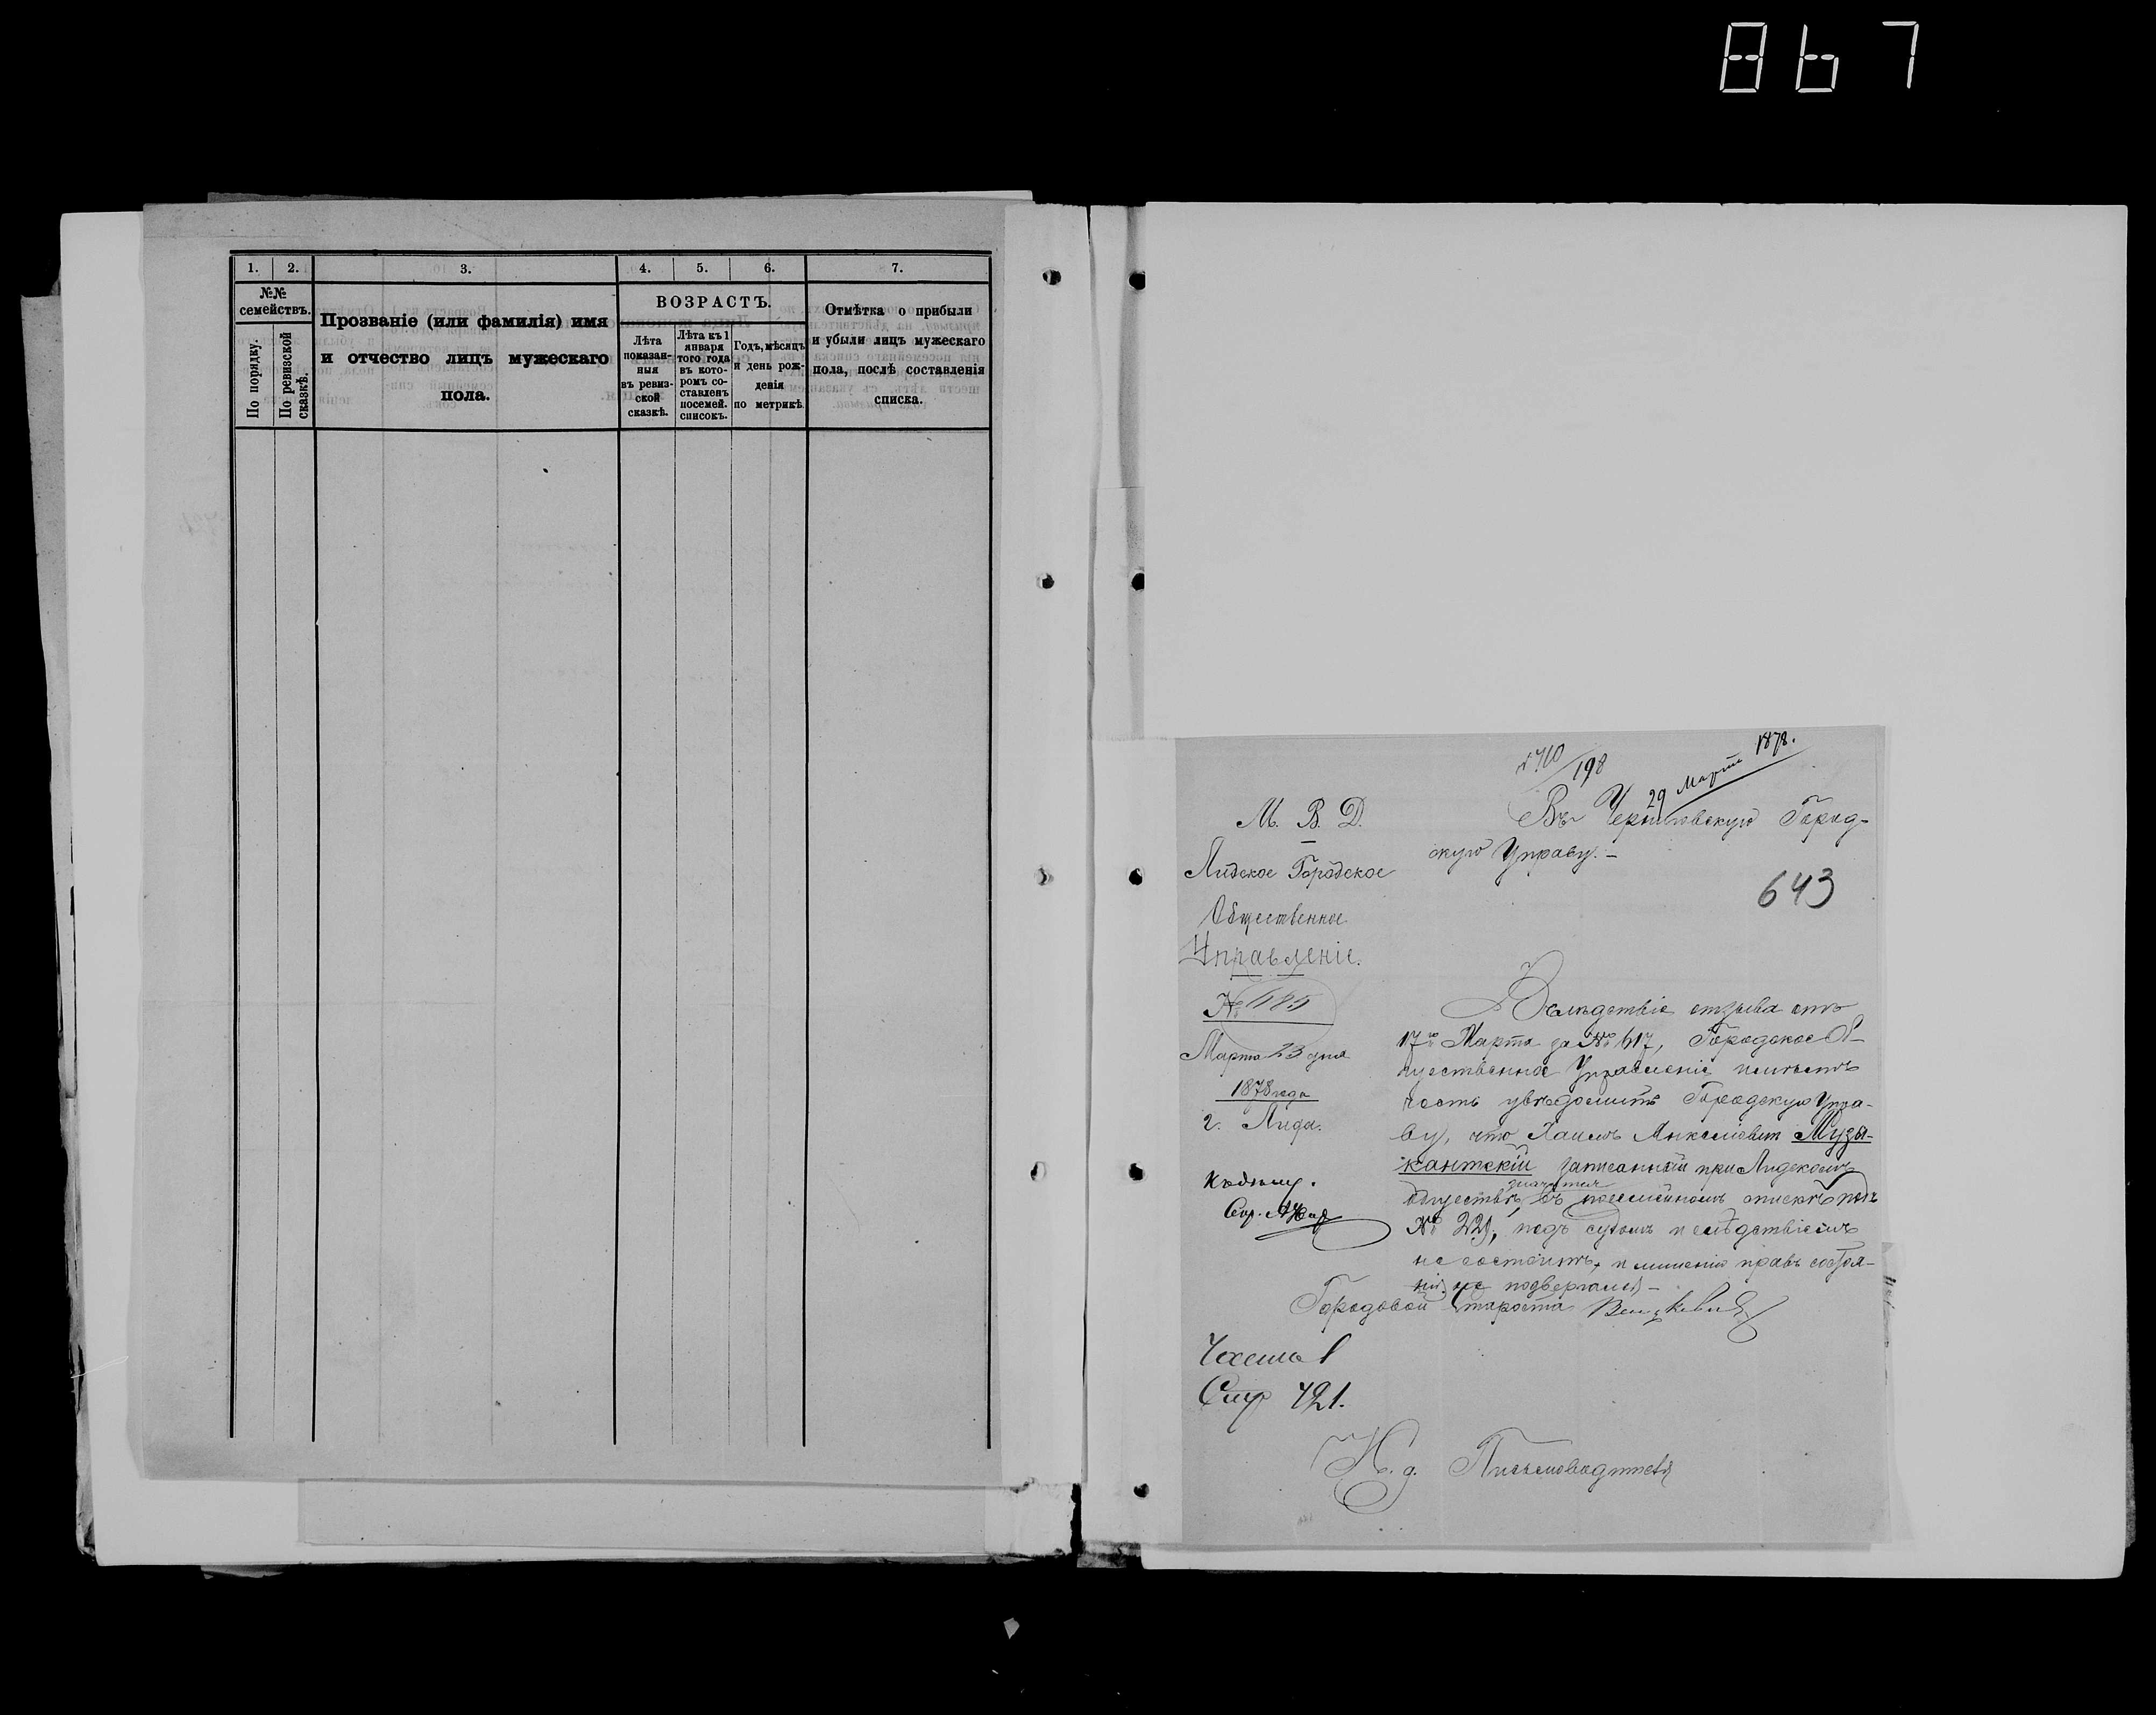 867
1. 2. 3. 4. 5. 6. 7.
№№
семействъ.
По порядку.
По ревизской
сказкѣ.
Прозваніе (или фамилія) имя
и отчество лицъ мужескаго
пола.
ВОЗРАСТЪ.
Лѣта
показан-
ныя
въ ревиз-
ской
сказкѣ.
Лѣта къ 1
января
того года
въ кото-
ромъ со-
ставленъ
посемей.
списокъ.
Годъ, мѣсяцъ
и день рож-
денія
по метрикѣ.
Отмѣтка о прибыли
и убыли лицъ мужескаго
пола, послѣ составленія
списка.
198
29 Марта 1878.
М. В. Д.
Лидское Городское
Общественное
Управленіе.
№ 485
Марта 23 дня
1878 года
г. Лида.
Къ дѣлу.
Въ Город-
скую Управу.-
643
Вслѣдствіе отзыва отъ
17го Марта за № 617, Городское Об-
щественное Управленіе имѣетъ
честь увѣдомить Городскую Упра-
ву, что Хаимъ Янкелевич Музы-
кантскій записанный при Лидскомъ
обществѣ, значится въ посемейномъ спискѣ подъ
№ 229, подъ судомъ и слѣдствіемъ
не состоитъ, и лишенію правъ состоя-
нія не подвергался -
Городовой Староста
Стр 421.
И. д. Письмоводителя